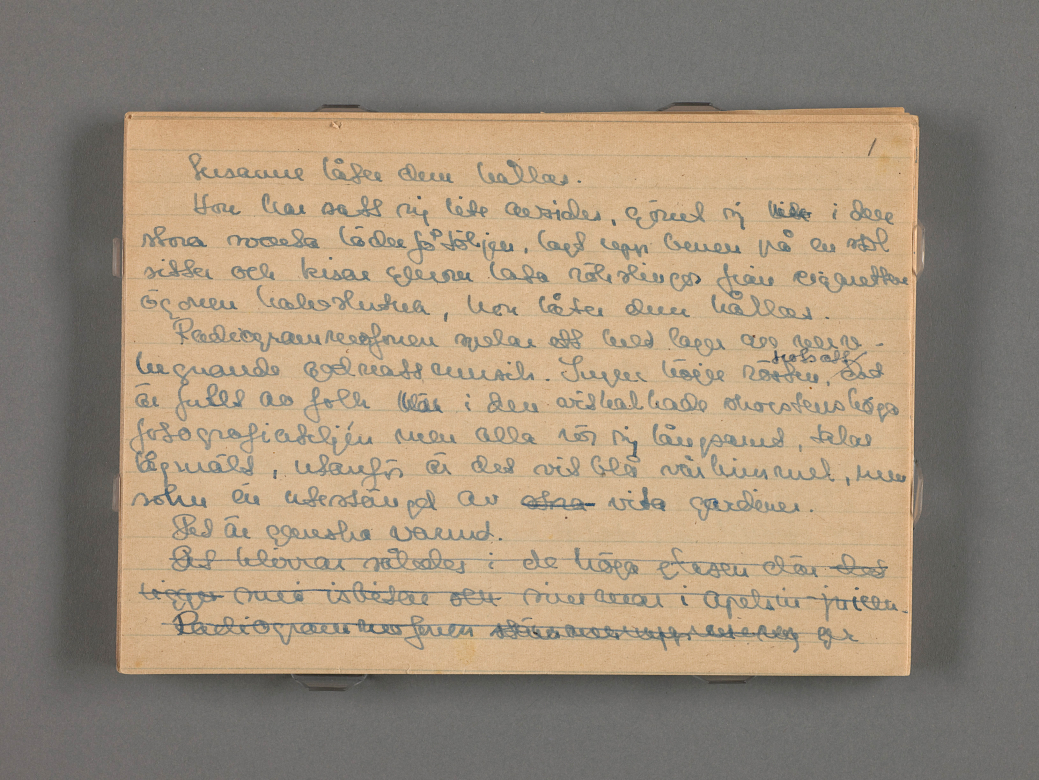 1
Susanne låter dem hållas.
Hon har satt sig lite avsides, gömt sig i den
stora svarta läderfåtöljen, lagt upp benen på en stol
sitter och kisar genom lata rökslingor från cigaretten
ögonen halvslutna, hon låter dem hållas.
Radiogrammofonen spelar ett helt lager av
lugnande grönattsmusik. Inga höga röster, trots att det
är fullt av folk här i den vitkalkade skorstenshöga
fotografiateljén men alla rör sig långsamt, talar
lågmält, utanför är det vit blå vårhimmel, men
solen är utestängd av stora vita gardiner.
Det är ganska varmt.
Det klirrar således i de höga glasen där det
ligger små isbitar och simmar i apelsin-juicen.
Radiogrammofonen ger